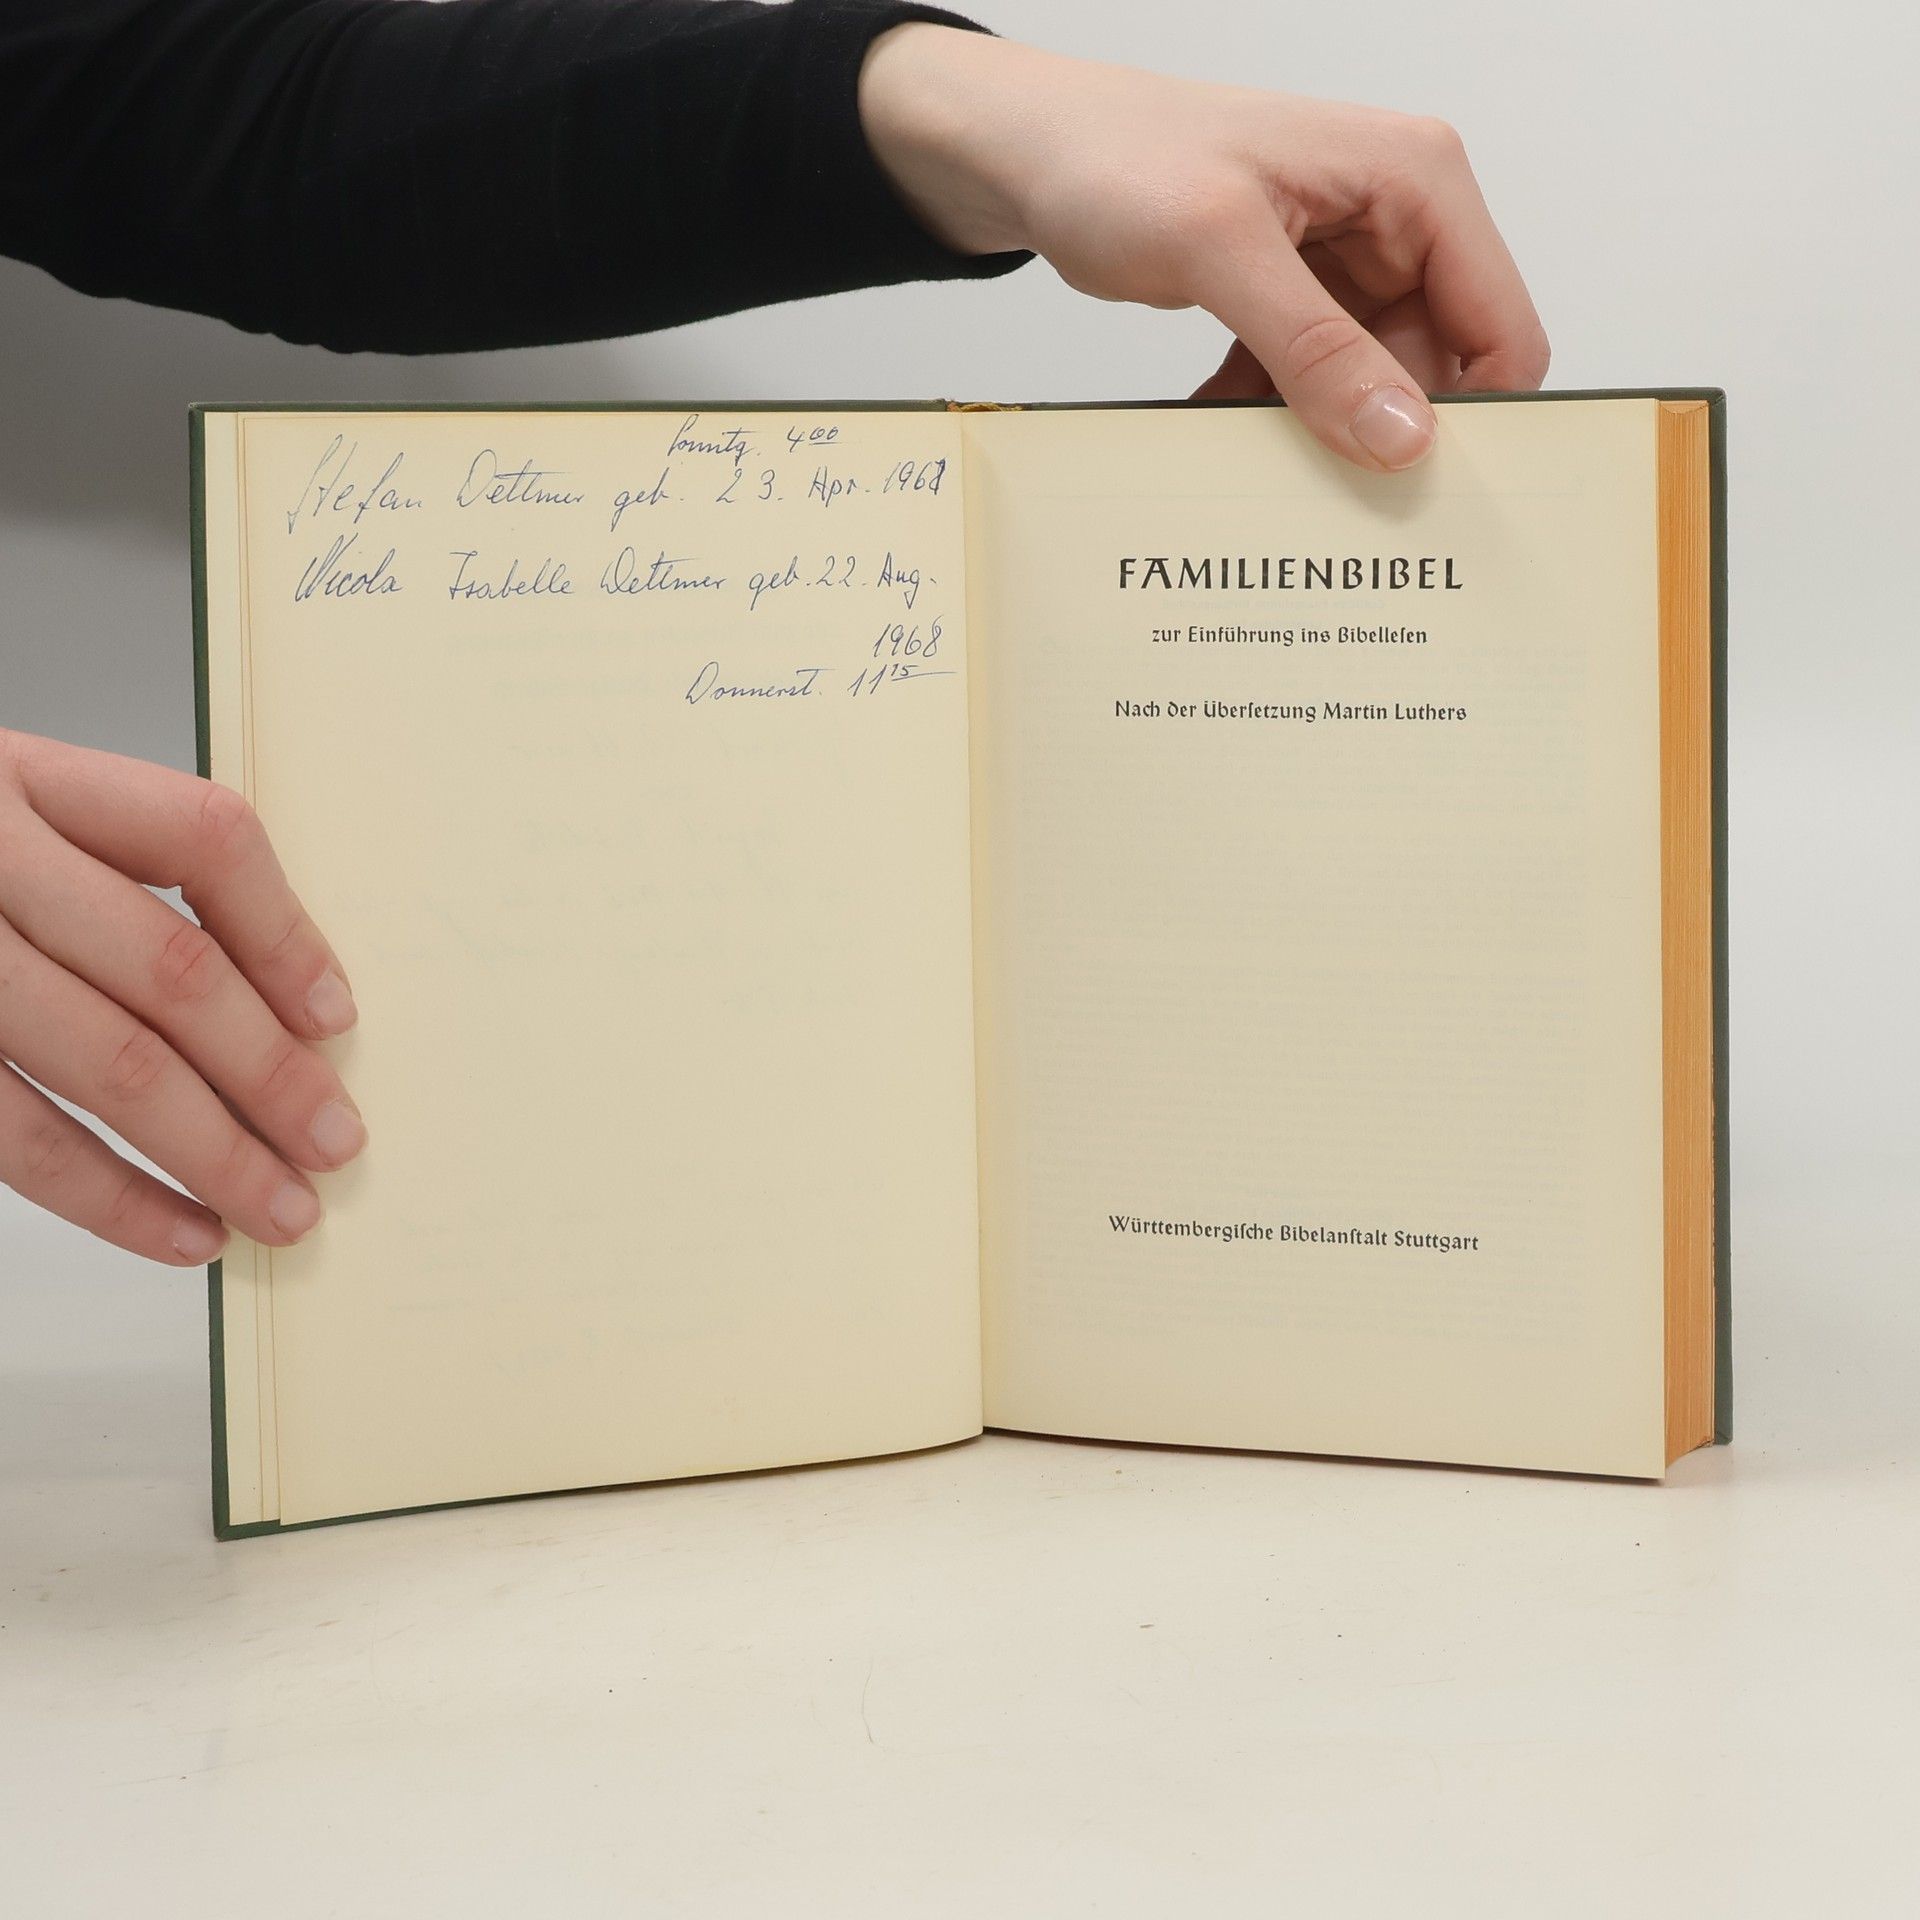 Sonntg. 4⁰⁰
Stefan Dettmer geb. 23. Apr. 1961
Nicola Isabelle Dettmer geb. 22. Aug.
1968
Donnerst. 11¹⁵
FAMILIENBIBEL
zur Einführung ins Bibelleſen
Nach der Überſetzung Martin Luthers
Württembergiſche Bibelanſtalt Stuttgart